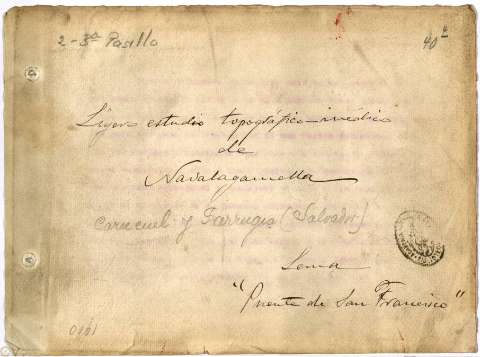 2-3ª Pasillo
40
Ligero estudio topográfico-médico
de
Navalagamella
Carnevil y Farrugia (Salvador)
Lema
"Puente de San Francisco"